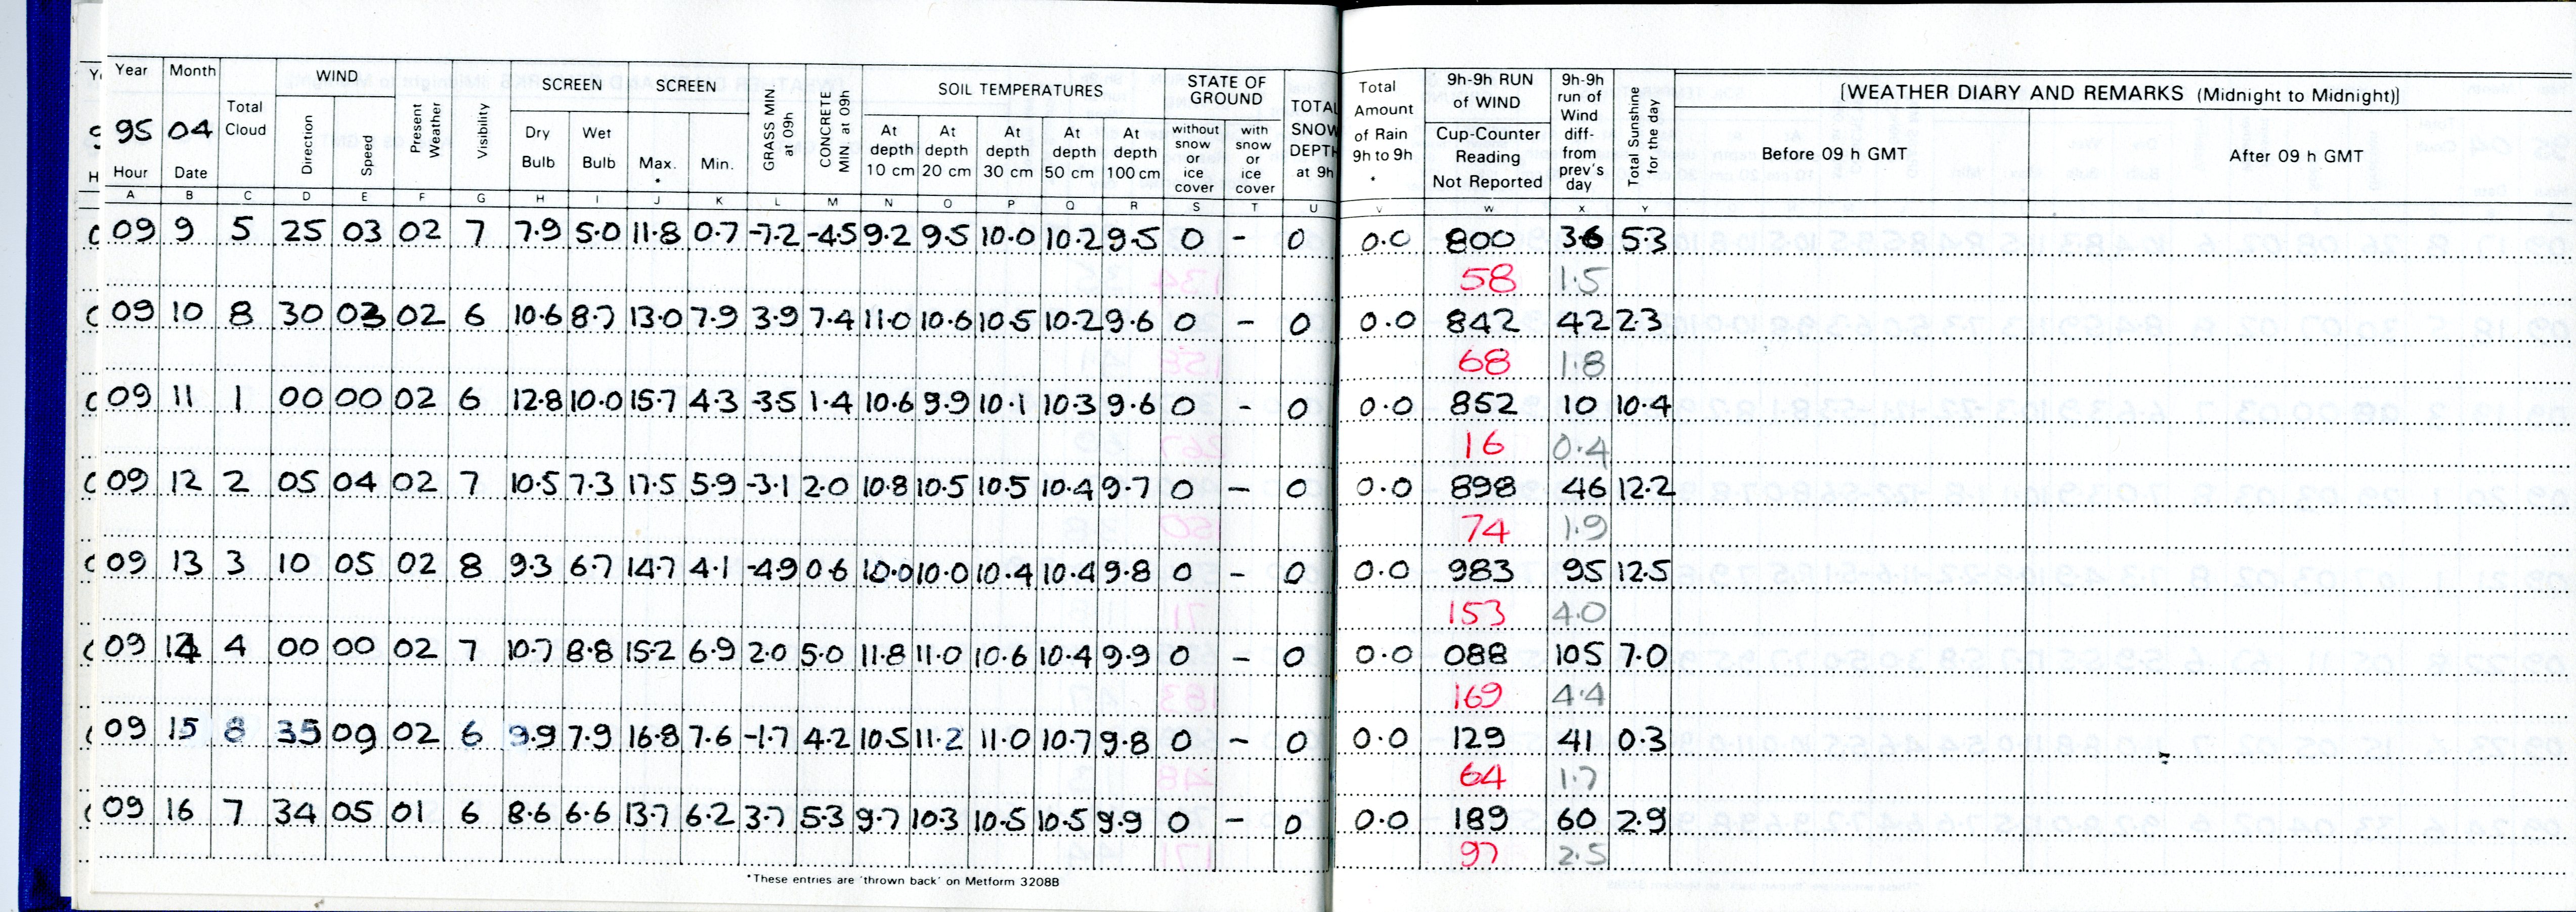 Year Month Total Cloud WIND Present Weather Visibility SCREEN SCREEN GRASS MIN. at 09h CONCRETE MIN at 09h SOIL TEMPERATURES STATE OF GROUND TOTAL SNOW DEPTH at 9h Total Amount of Rain 9h to 9h * 9h-9h RUN of WIND 9h-9h run of Wind diff- from prev's day Total Sunshine for the day [WEATHER DIARY AND REMARKS (Midnight to Midnight)]
95 04 Direction Speed Dry Bulb Wet Bulb Max. * Min. At depth 10 cm At depth 20 cm At depth 30 cm At depth 50 cm At depth 100 cm without snow or ice cover with snow or ice cover Cup-Counter Reading Not Reported Before 09 h GMT After 09 h GMT
Hour Date
A B C D E F G H I J K L M N O P Q R S T U V W X Y
09 9 5 25 03 02 7 7.9 5.0 11.8 0.7 -7.2 -4.5 9.2 9.5 10.0 10.2 9.5 0 - 0 0.0 800 36 5.3
58 1.5
09 10 8 30 03 02 6 10.6 8.7 13.0 7.9 3.9 7.4 11.0 10.6 10.5 10.2 9.6 0 - 0 0.0 842 42 2.3
68 1.8
09 11 1 00 00 02 6 12.8 10.0 15.7 4.3 -3.5 1.4 10.6 9.9 10.1 10.3 9.6 0 - 0 0.0 852 10 10.4
16 0.4
09 12 2 05 04 02 7 10.5 7.3 17.5 5.9 -3.1 2.0 10.8 10.5 10.5 10.4 9.7 0 - 0 0.0 898 46 12.2
74 1.9
09 13 3 10 05 02 8 9.3 6.7 14.7 4.1 -4.9 0.6 10.0 10.0 10.4 10.4 9.8 0 - 0 0.0 983 95 12.5
153 4.0
09 14 4 00 00 02 7 10.7 8.8 15.2 6.9 2.0 5.0 11.8 11.0 10.6 10.4 9.9 0 - 0 0.0 088 105 7.0
169 4.4
09 15 8 35 09 02 6 9.9 7.9 16.8 7.6 -1.7 4.2 10.5 11.2 11.0 10.7 9.8 0 - 0 0.0 129 41 0.3
64 1.7
09 16 7 34 05 01 6 8.6 6.6 13.7 6.2 3.7 5.3 9.7 10.3 10.5 10.5 9.9 0 - 0 0.0 189 60 2.9
97 2.5
*These entries are 'thrown back' on Metform 3208B